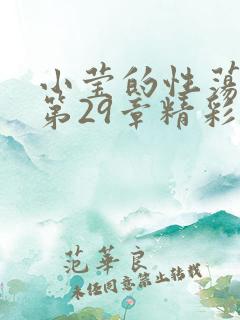 小莹的性荡
第29章精彩
范华良
未经同意禁止转载